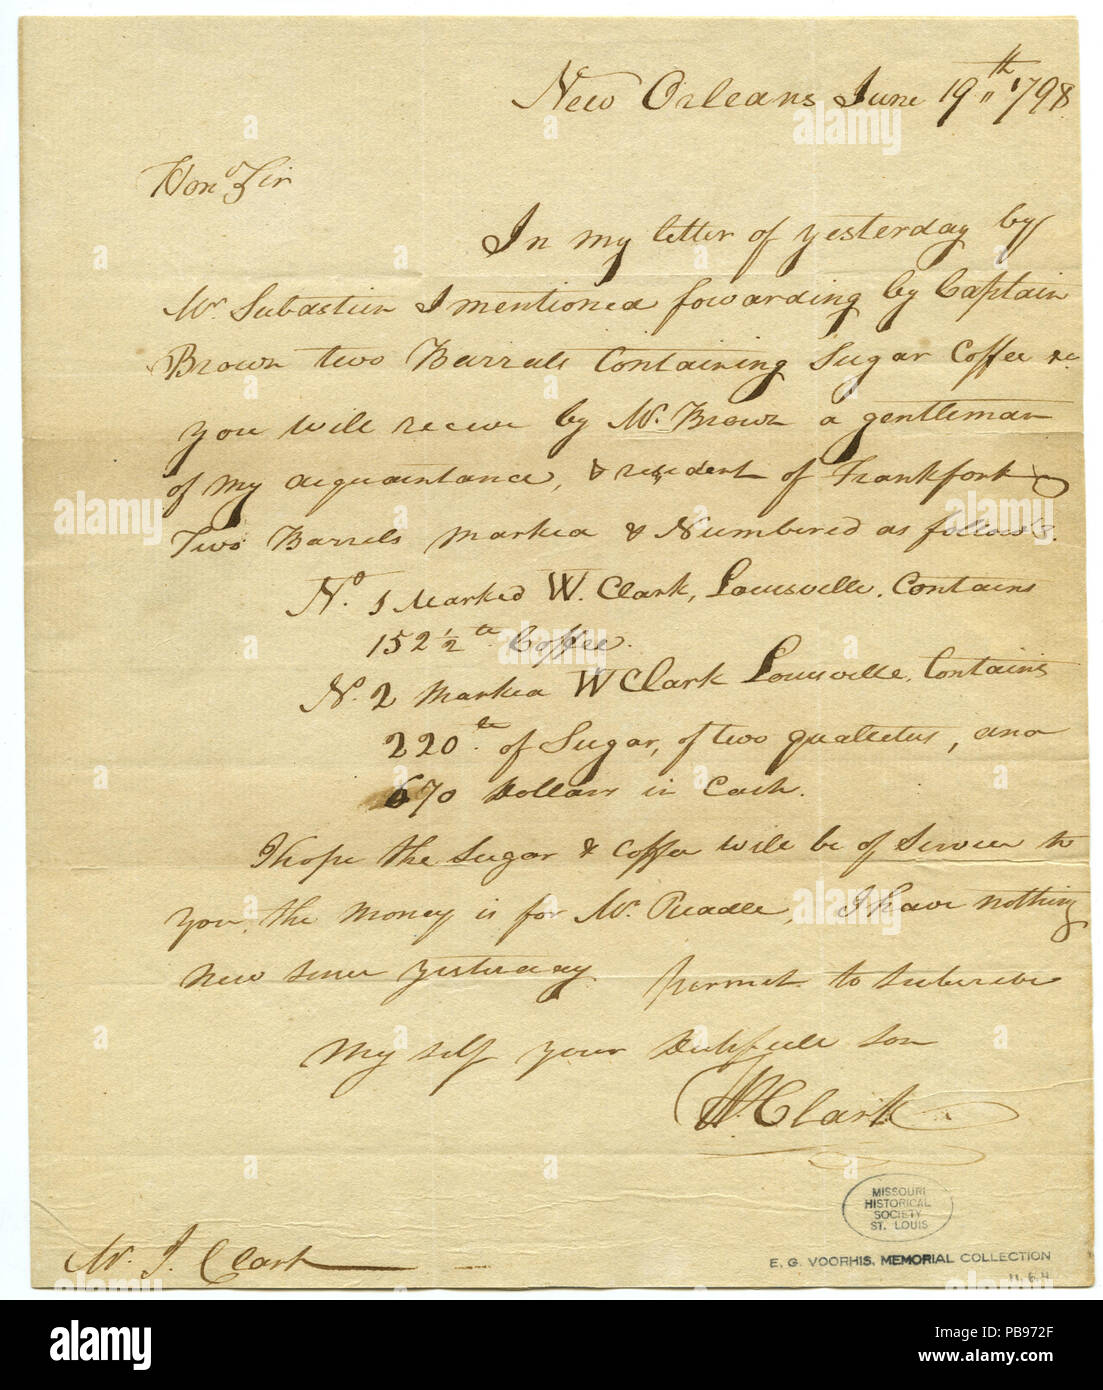 New Orleans June 19th 1798
Hond Sir
In my letter of yesterday by
Mr. Subastion I mentioned fowarding by Captain
Brown two Barrels Containing Sugar Coffee &c
you will receive by Mr. Brown a gentleman
of my acquaintance, & resident of Frankfort
Two Barrels marked & Numbered as follows.
No. 1 Marked W. Clark, Louisville. Contains
152 1/2 lb. Coffee.
No. 2 marked W Clark Louisville, Contains
220 lb. of Sugar, of two qualities, and
670 Dollars in Cash.
I hope the Sugar & Coffee will be of Service to
you, the money is for Mr. Riddle, I have nothing
new since yesterday. permit to subscribe
my self your Dutifull son
W. Clark
Mr. J. Clark
MISSOURI
HISTORICAL
SOCIETY
ST. LOUIS
E. G. VOORHIS, MEMORIAL COLLECTION
alamy
alamy
Image ID: PB972F
www.alamy.com